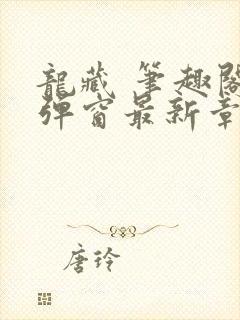 龍藏 筆趣閣
彈窗最新章
唐玲